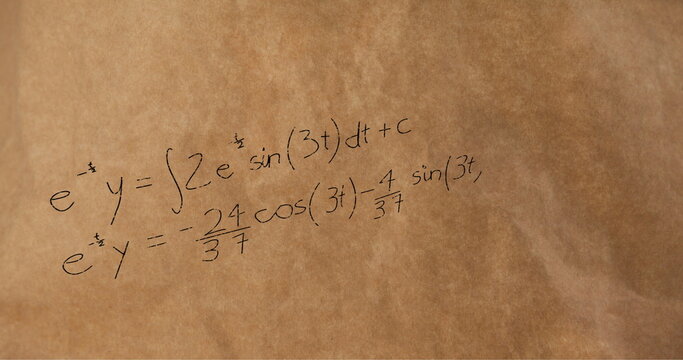 e^{-t/2} y = ∫ 2 e^{-t/2} sin(3t) dt + c
e^{-t/2} y = -24/37 cos(3t) - 4/37 sin(3t,